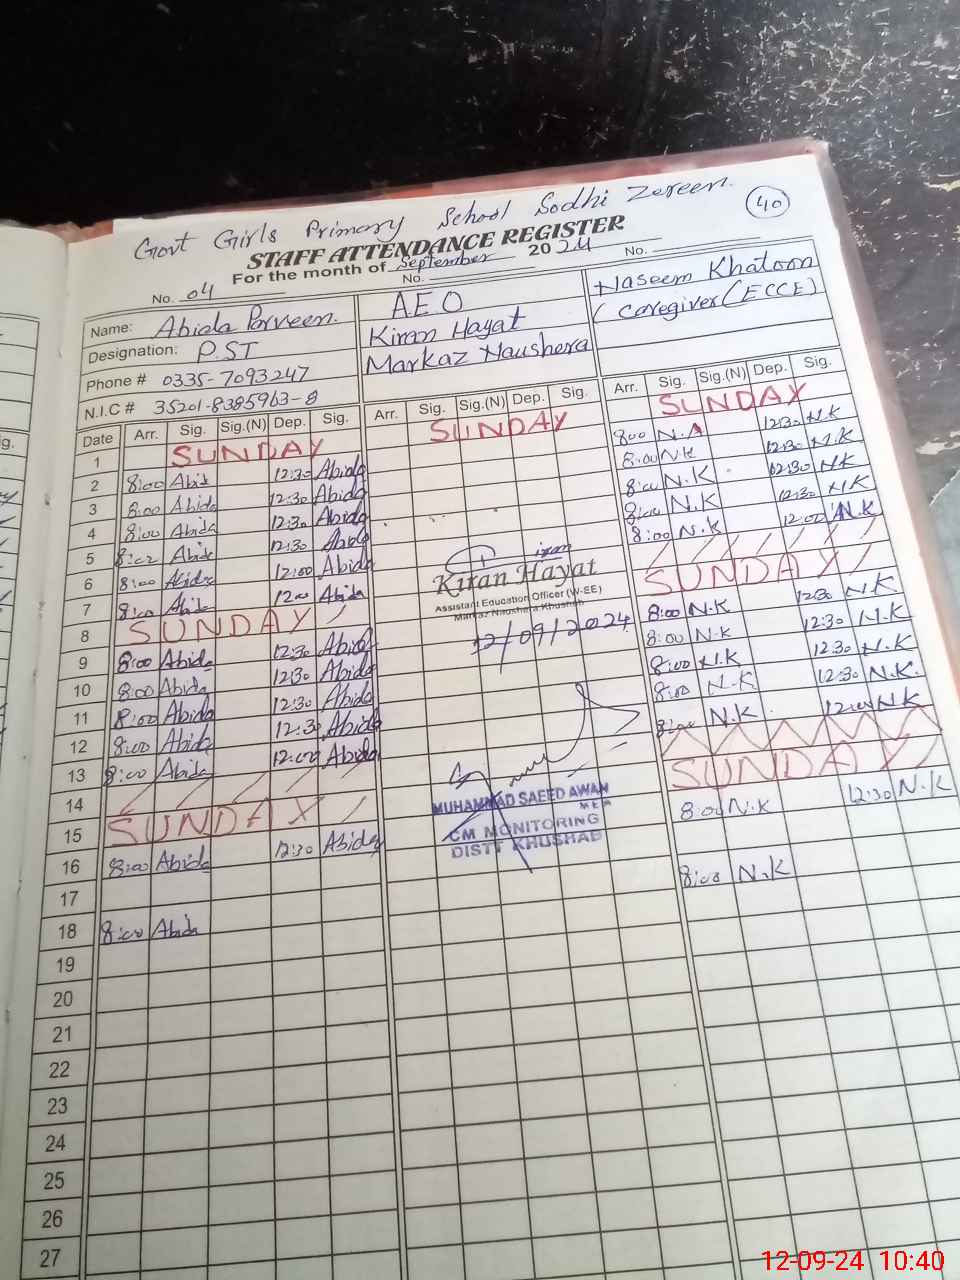 Govt Girls Primary School Sodhi Zereen.
40
STAFF ATTENDANCE REGISTER
For the month of September 2024
No. 04 No. No.
Name: Abida Parveen. A.E.O Naseem Khatoon
Designation: P.ST Kiran Hayat (Caregiver (ECCE)
Phone # 0335-7093247 Markaz Naushera
N.I.C # 35201-8385963-8
Date Arr. Sig. Sig.(N) Dep. Sig. Arr. Sig. Sig.(N) Dep. Sig. Arr. Sig. Sig.(N) Dep. Sig.
1 SUNDAY SUNDAY SUNDAY
2 8:00 Abida 12:30 Abida 8:00 N.A 12:30 N.K
3 8:00 Abida 12:30 Abida 8:00 N.K 12:30 N.K
4 8:00 Abida 12:30 Abida 8:00 N.K 12:30 N.K
5 8:00 Abida 12:30 Abida 8:00 N.K 12:30 N.K
6 8:00 Abida 12:00 Abida 8:00 N.K 12:00 N.K
7 8:00 Abida 12:00 Abida
8 SUNDAY SUNDAY
9 8:00 Abida 12:30 Abida 8:00 N.K 12:30 N.K
10 8:00 Abida 12:30 Abida 8:00 N.K 12:30 N.K
11 8:00 Abida 12:30 Abida 8:00 N.K 12:30 N.K
12 8:00 Abida 12:30 Abida 8:00 N.K 12:30 N.K
13 8:00 Abida 12:00 Abida 8:00 N.K 12:00 N.K
14
15 SUNDAY SUNDAY
16 8:00 Abida 12:30 Abida 8:00 N.K 12:30 N.K
17
18 8:00 Abida 8:00 N.K
19
20
21
22
23
24
25
26
27
Kiran
Kiran Hayat
Assistant Education Officer (W-EE)
Markaz Naushera Khushab
12/09/2024
MUHAMMAD SAEED AWAN
MEA
CM MONITORING
DISTT KHUSHAB
12-09-24 10:40